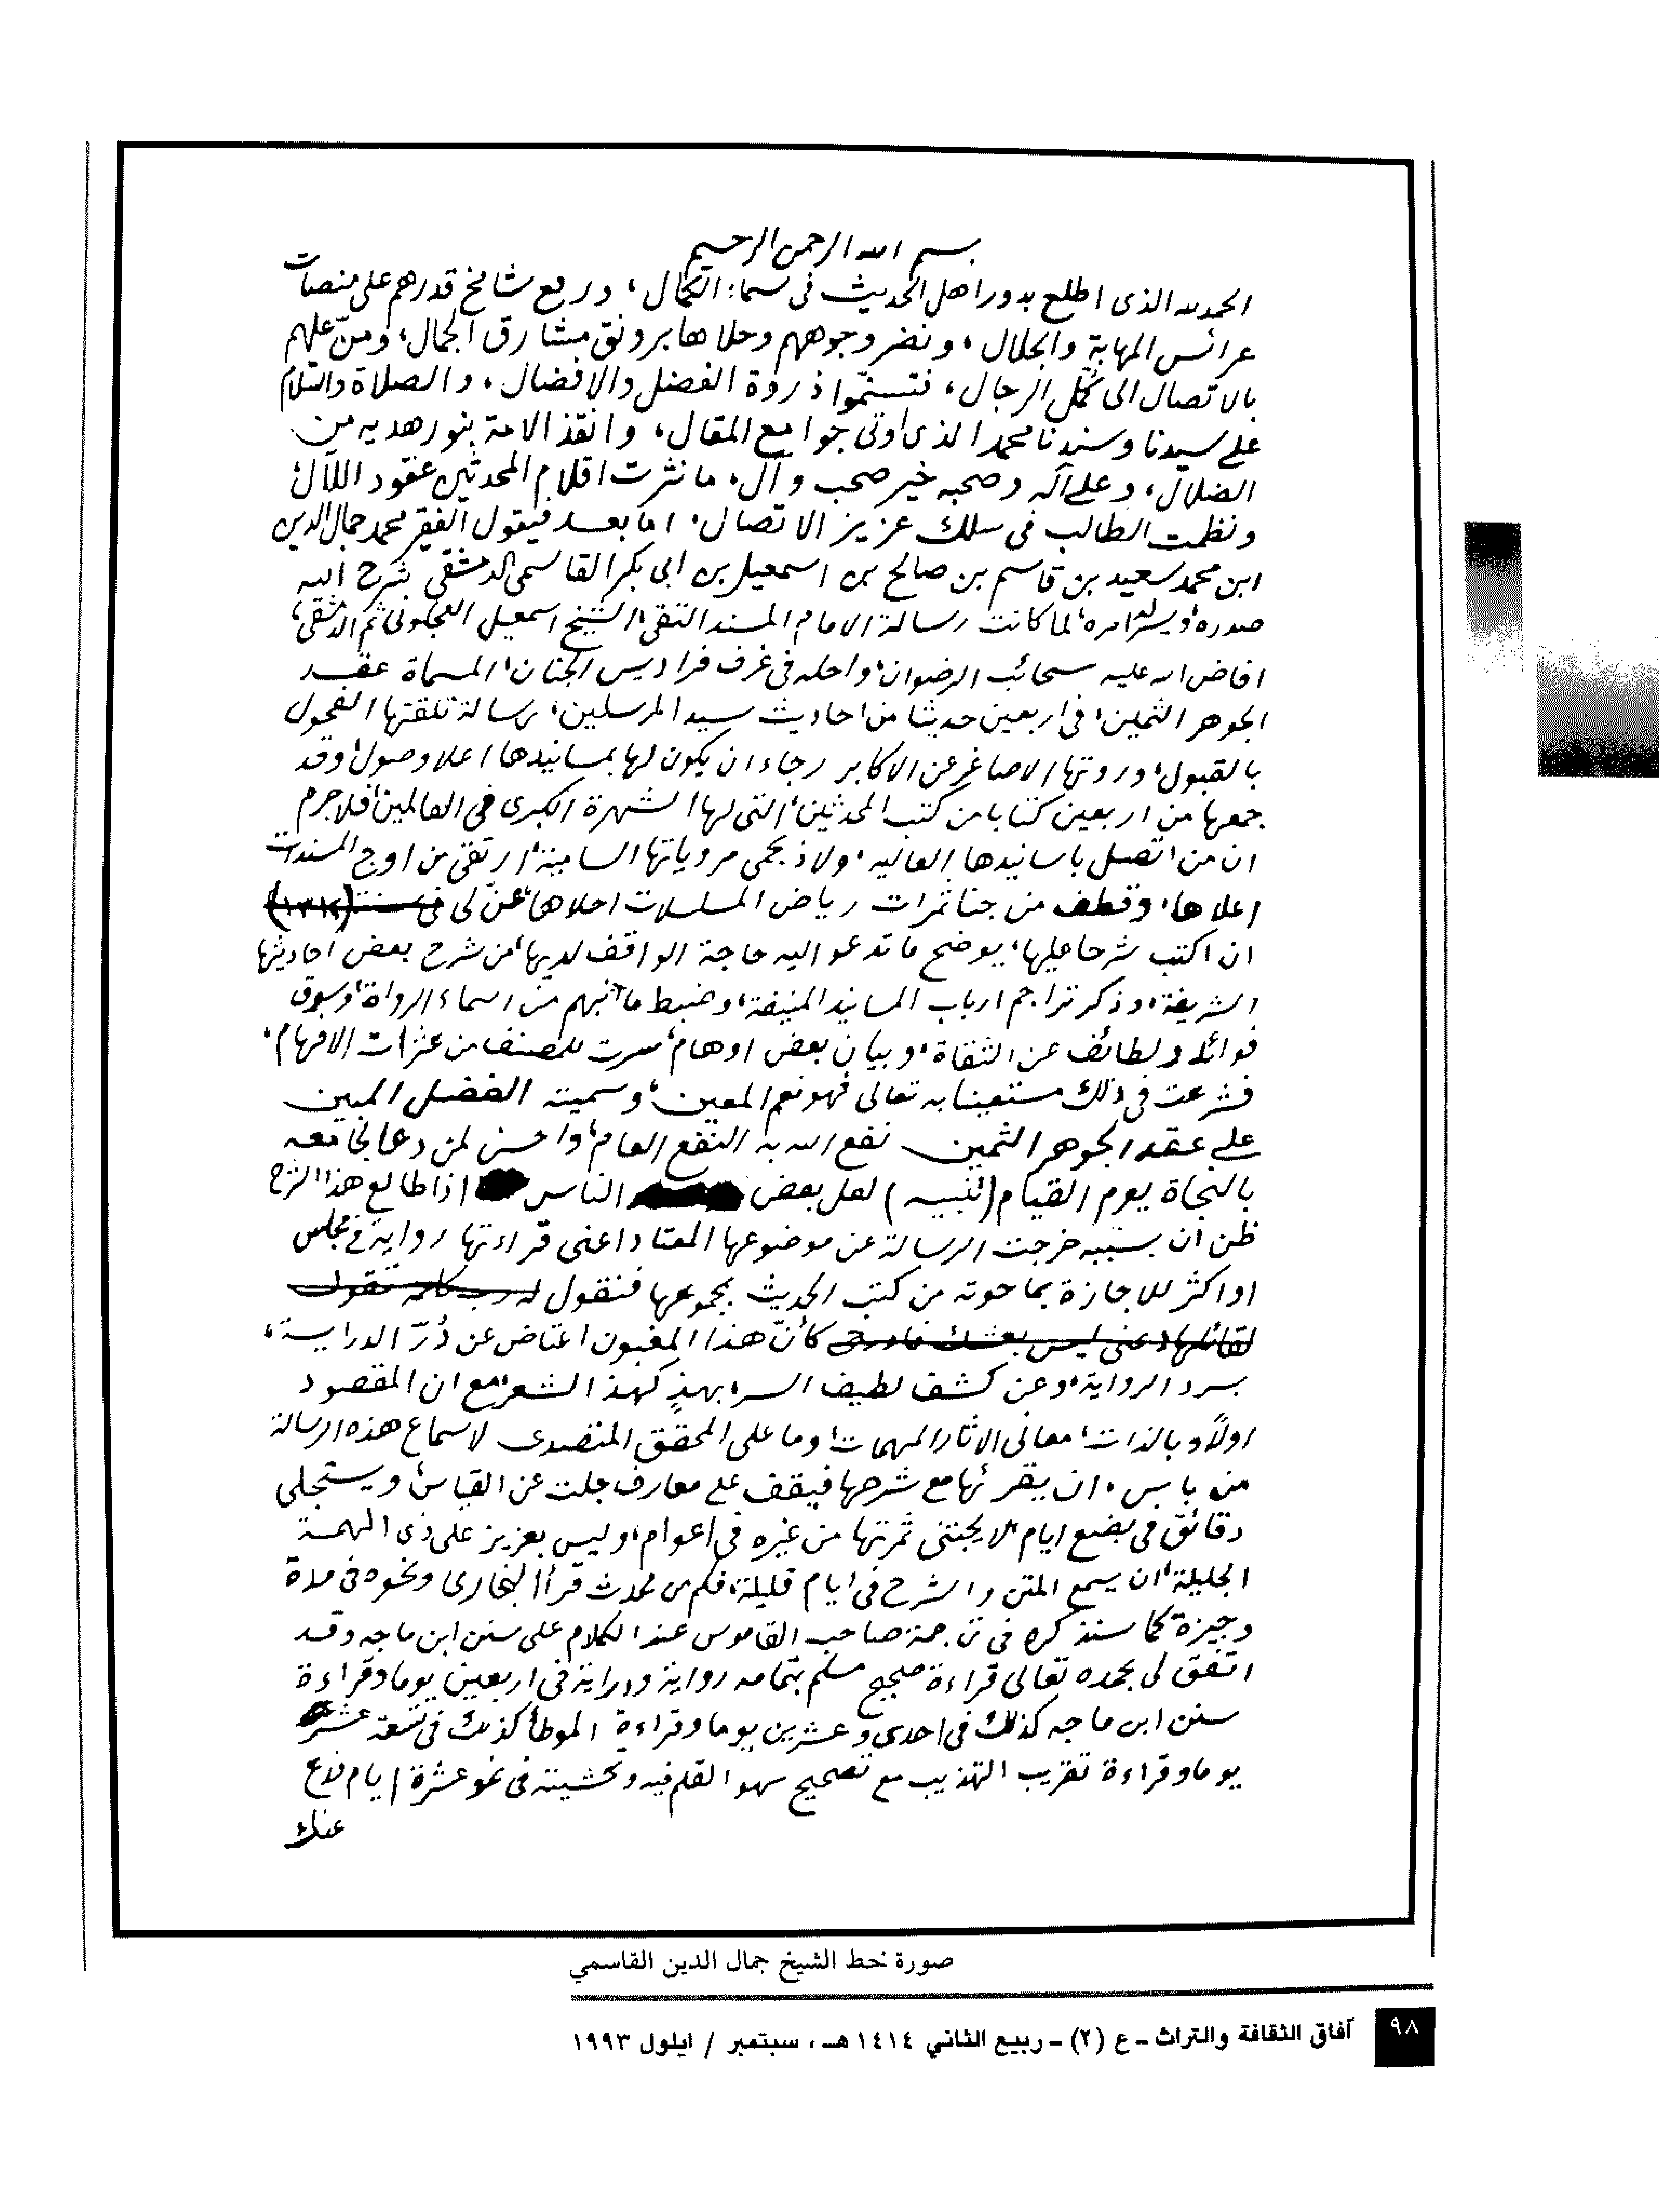 بسم الله الرحمن الرحيم
الحمد لله الذى اطلع بدور اهل الحديث فى سماء الكمال، ورفع شامخ قدرهم على منصات
عرائس المهابة والجلال، ونضر وجوههم وحلاها برونق مشارق الجمال، ومنّ عليهم
بالاتصال الى كمّل الرجال، فتسنّموا ذروة الفضل والافضال، والصلاة والسلام
على سيدنا وسندنا محمد الذى اوتى جوامع المقال، وانقذ الامة بنور هديه من
الضلال، وعلى آله وصحبه خير صحب وآل، ما نثرت اقلام المحدثين عقود اللآل
ونظمت الطالب فى سلك عزيز الاتصال، اما بعد فيقول الفقير محمد جمال الدين
ابن محمد سعيد بن قاسم بن صالح بن اسمعيل بن ابى بكر القاسمى الدمشقى شرح الله
صدره، ويسّر امره، لما كانت رسالة الامام المسند التقى، الشيخ اسمعيل العجلونى ثم الدمشقى،
افاض الله عليه سحائب الرضوان، واحله فى غرف فراديس الجنان، المسماة عقد
الجوهر الثمين، فى اربعين حديثا من احاديث سيد المرسلين، رسالة تلقتها الفحول
بالقبول، وروتها الاصاغر عن الاكابر رجاء ان يكون لها بمسانيدها اعلا وصول، وقد
جمعها من اربعين كتابا من كتب المحدثين، التى لها الشهرة الكبرى فى العالمين، فلا جرم
ان من اتصل باسانيدها العاليه، ولاذ بحمى مروياتها السامية، ارتقى من اوج المسندات
اعلاها، وقطف من جنا ثمرات رياض المسلسلات احلاها، عنّ لى فى سنة
ان اكتب شرحا عليها، يوضح ما تدعو اليه حاجة الواقف لديها، من شرح بعض احاديثها
الشريفة، وذكر تراجم ارباب المسانيد المنيفة، وضبط ما انبهم من اسماء الرواة، وسوق
فوائد ولطائف عن الثقاة، وبيان بعض اوهام، سرت للمصنف من عثرات الافهام،
فشرعت فى ذلك مستعينا به تعالى فهو نعم المعين، وسميته الفضل المبين
على عقد الجوهر الثمين نفع الله به النفع العام، واحسن لمن دعا لجامعه
بالنجاة يوم القيام (تنبيه) لعل بعض الناس اذا طالع هذا الشرح
ظن ان بسببه خرجت الرسالة عن موضوعها المعتاد اعنى قراءتها رواية فى مجلس
او اكثر للاجازة بما حوته من كتب الحديث بمجموعها فنقول له رب كلمة تقول
لقائلها دعنى ليس بعشك فادرجى كأنّ هذا المغبون اعتاض عن دُرّ الدراية،
بسرد الرواية، وعن كشف لطيف السر، بهذٍ كهذ الشعر، مع ان المقصود
اولاً وبالذات، معانى الاثار المهمات، وما على المحقق المتصدى لاسماع هذه الرسالة
من باس، ان يقرئها مع شرحها فيقف على معارف جلت عن القياس، ويستجلى
دقائق فى بضع ايام، لا يجتنى ثمرتها من غيره فى اعوام، وليس بعزيز على ذى الهمة
الجليلة، ان يسمع المتن والشرح فى ايام قليلة، فكم من محدث قرأ البخارى ونحوه فى مدة
وجيزة كما سنذكره فى ترجمة صاحب القاموس عند الكلام على سنن ابن ماجه وقد
اتفق لى بحمده تعالى قراءة صحيح مسلم بتمامه رواية ودراية فى اربعين يوما وقراءة
سنن ابن ماجه كذلك فى احدى وعشرين يوما وقراءة الموطأ كذلك فى تسعة عشر
يوما وقراءة تقريب التهذيب مع تصحيح سهو القلم فيه وتحشيته فى نحو عشرة ايام فدع
عنك
صورة خط الشيخ جمال الدين القاسمي
٩٨ آفاق الثقافة والتراث - ع (٢) - ربيع الثاني ١٤١٤ هـ، سبتمبر / ايلول ١٩٩٣